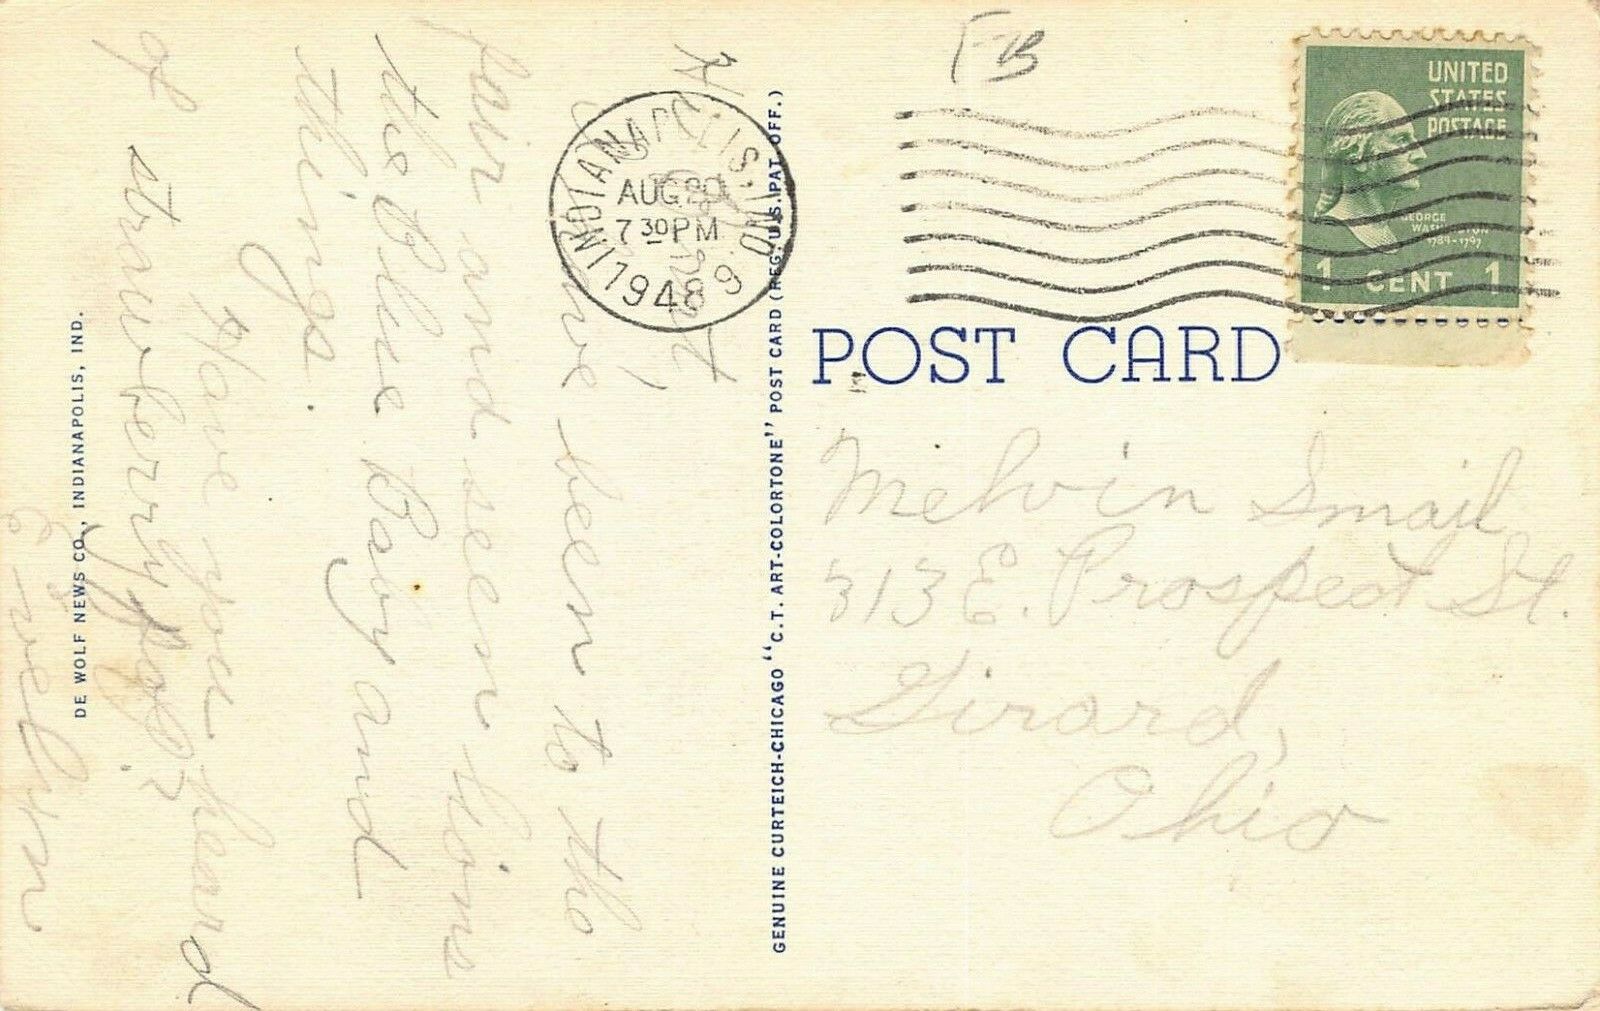 FB
UNITED
STATES
POSTAGE
GEORGE
WASHINGTON
1789-1797
1 CENT 1
INDIANAPOLIS, IND.
AUG 20
7 30 PM
1948
9
POST CARD
Melvin Smail
313 E. Prospect St.
Girard,
Ohio
GENUINE CURTEICH-CHICAGO "C.T. ART-COLORTONE" POST CARD (REG. U.S. PAT. OFF.)
have been to the
fair and seen lions
the Blue Baby and
things.
Have you heard
of strawberry pop?
Evelyn
DE WOLF NEWS CO., INDIANAPOLIS, IND.